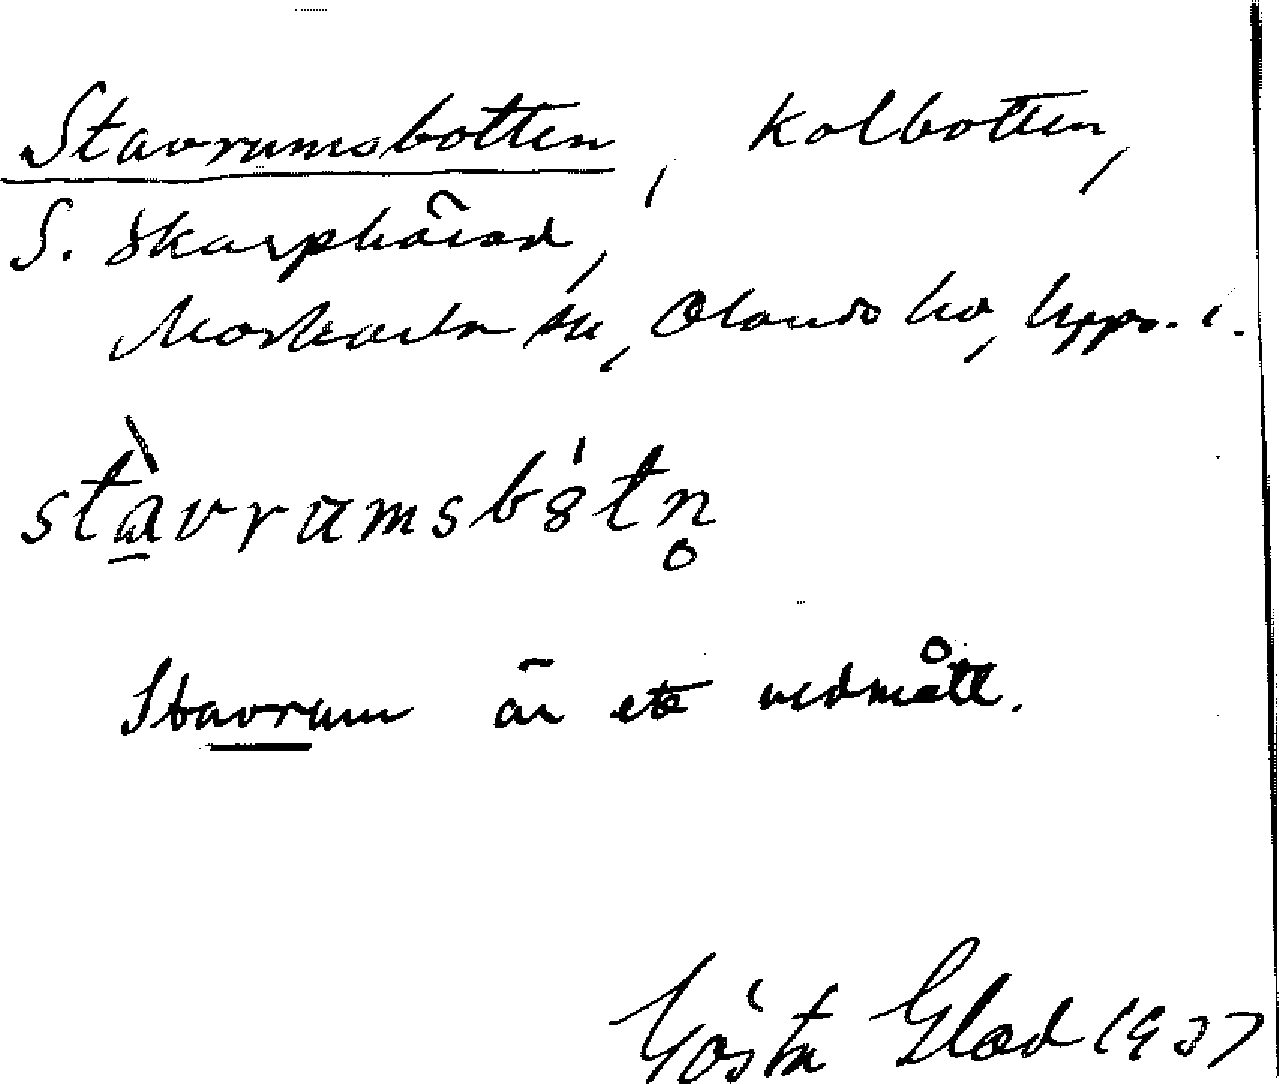 Stavrumsbotten, kolbotten,
S. Skarphärad,
Morkarla sn, Olands hd, Upps. l.
stàvrumsbòtn̥
Stavrum är ett vedmått.
Gösta Glad 1937